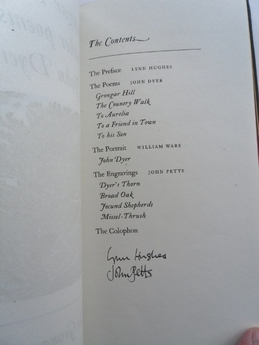 The Contents
The Preface LYNN HUGHES
The Poems JOHN DYER
Grongar Hill
The Country Walk
To Aurelia
To a Friend in Town
To his Son
The Portrait WILLIAM WARE
John Dyer
The Engravings JOHN PETTS
Dyer's Thorn
Broad Oak
Jocund Shepherds
Missel-Thrush
The Colophon
Lynn Hughes
John Petts